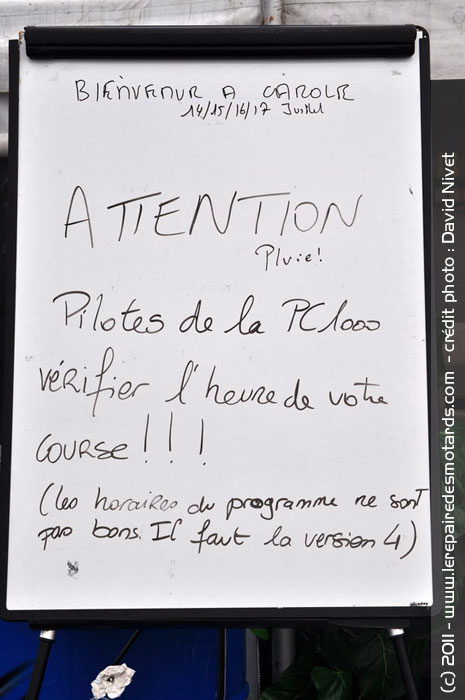 BIENVENUE A CAROLE
14/15/16/17 Juillet
ATTENTION
Pluie!
Pilotes de la PC1000
vérifier l'heure de votre
course!!!
(les horaires du programme ne sont
pas bons. Il faut la version 4)
(c) 2011 - www.lerepairedesmotards.com - crédit photo : David Nivet